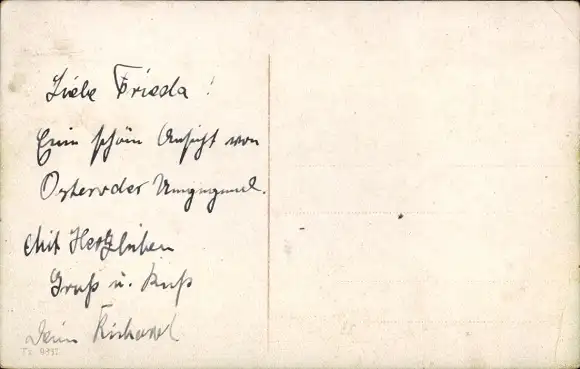 Liebe Frieda!
Eine schön Ansicht von
Osteroder Umgegend.
Mit Hertzlichen
Gruß u. Kuß
Dein Richard